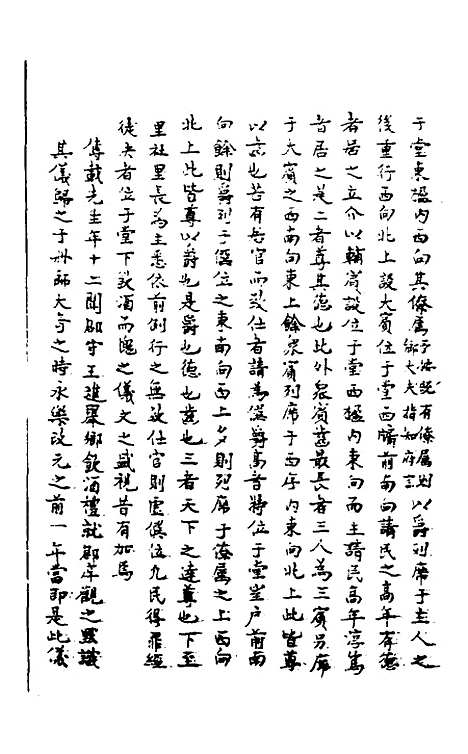 于堂東楹内西向其僚屬于法既有僚屬則鄉大夫指知府言以爵列席于主人之
後重行西向北上設大賓位于堂西牖前南向請民之高年有德
者居之立介以輔賓設位于堂西楹内東向而主請民高年淳篤
者居之是二者尊其德也此外衆賓齒最長者三人為三賓另席
于大賓之西南向東上餘衆賓列席于西序内東向北上此皆尊
以齒也若有居官而致仕者請為僎爵高者特位于堂室户前南
向餘則爵列于僎位之東南向西上多則列席于僚屬之上西向
北上此皆尊以爵也是爵也德也齒也三者天下之達尊也下至
里社里長為主悉依前例行之無致仕官則虚僎位凡民得罪經
徒夫者位于堂下致酒而愧之儀文之盛視昔有加焉
傳載先生年十二聞郡守王進舉鄉飲酒禮就郡庠觀之默識
其儀歸之于冊師大奇之時永樂改元之前一年當即是此儀